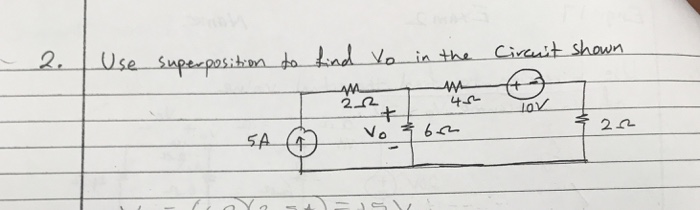 2. Use superposition to find Vo in the Circuit shown
2Ω 4Ω + - 10V
5A + Vo - 6Ω 2Ω